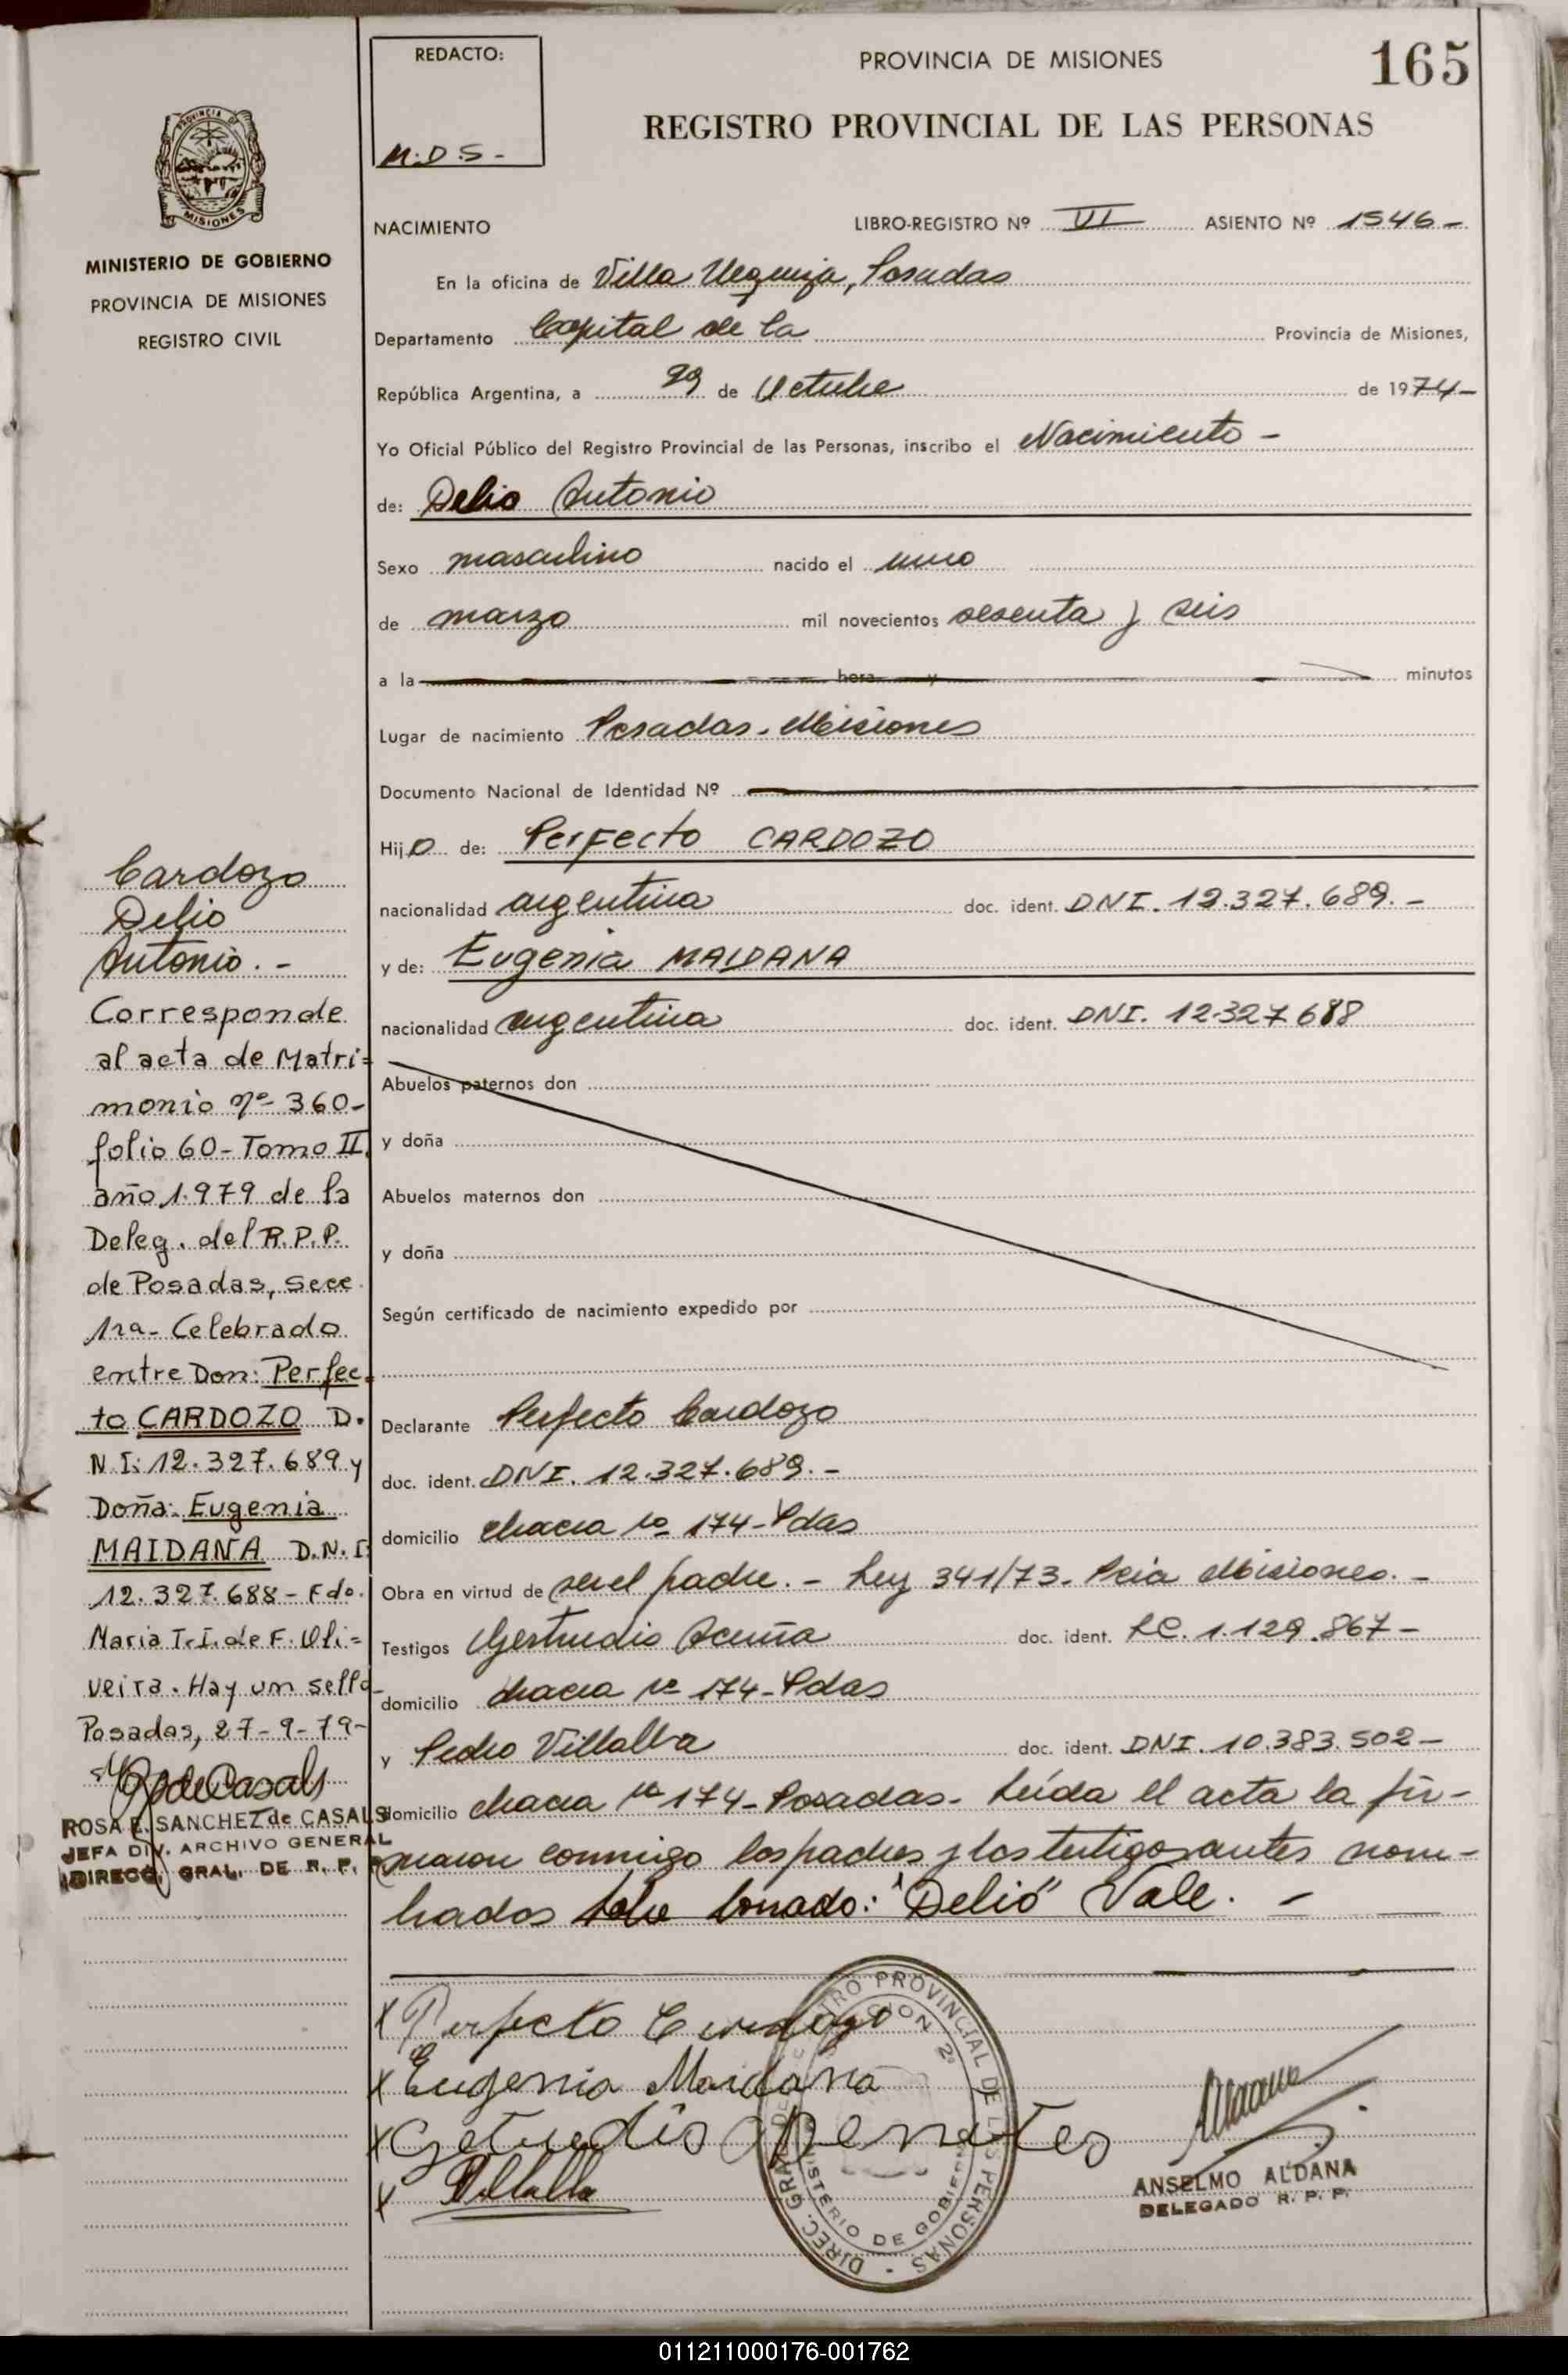 REDACTO:
M.D.S-
PROVINCIA DE MISIONES
165
REGISTRO PROVINCIAL DE LAS PERSONAS
PROVINCIA DE
MISIONES
MINISTERIO DE GOBIERNO
PROVINCIA DE MISIONES
REGISTRO CIVIL
NACIMIENTO LIBRO-REGISTRO Nº VI ASIENTO Nº 1546-
En la oficina de Villa Urquiza, Posadas
Departamento Capital de la Provincia de Misiones,
República Argentina, a 29 de Octubre de 1974-
Yo Oficial Público del Registro Provincial de las Personas, inscribo el Nacimiento -
de: Delio Antonio
Sexo masculino nacido el uno
de marzo mil novecientos sesenta y seis
a la hora y minutos
Lugar de nacimiento Posadas - Misiones
Documento Nacional de Identidad Nº
Hijo de: Perfecto CARDOZO
nacionalidad argentina doc. ident. DNI. 12.327.689.-
y de: Eugenia MAIDANA
nacionalidad argentina doc. ident. DNI. 12.327688
Abuelos paternos don
y doña
Abuelos maternos don
y doña
Según certificado de nacimiento expedido por
Declarante Perfecto Cardozo
doc. ident. DNI. 12.327.689.-
domicilio chacra nº 174-Pdas
Obra en virtud de ser el padre. - Ley 341/73. Pcia Misiones. -
Testigos Gertrudis Acuña doc. ident. LC. 1.129.867-
domicilio chacra nº 174-Pdas
y Pedro Villalba doc. ident. DNI. 10.383.502-
domicilio chacra nº 174-Posadas- Leída el acta la fir-
maron conmigo los padres y los testigos antes nom-
brados Sobre borrado: "Delio" Vale. -
Cardozo
Delio
Antonio.-
Corresponde
al acta de Matri=
monio nº 360-
folio 60-Tomo II
año 1.979 de la
Deleg. del R.P.P.
de Posadas, secc.
1ra- Celebrado
entre Don: Perfec=
to CARDOZO D.
N.I: 12.327.689 y
Doña: Eugenia
MAIDANA D.N.I:
12.327.688-Fdo.
Maria T.I. de F. Oli=
veira. Hay un sello-
Posadas, 27-9-79-
ROSA E. SANCHEZ de CASALS
JEFA DIV. ARCHIVO GENERAL
DIRECC. GRAL. DE R. P. P.
x Perfecto Cardozo
x Eugenia Maidana
x Getrudis
x Villalba
ANSELMO ALDANA
DELEGADO R. P. P.
011211000176-001762